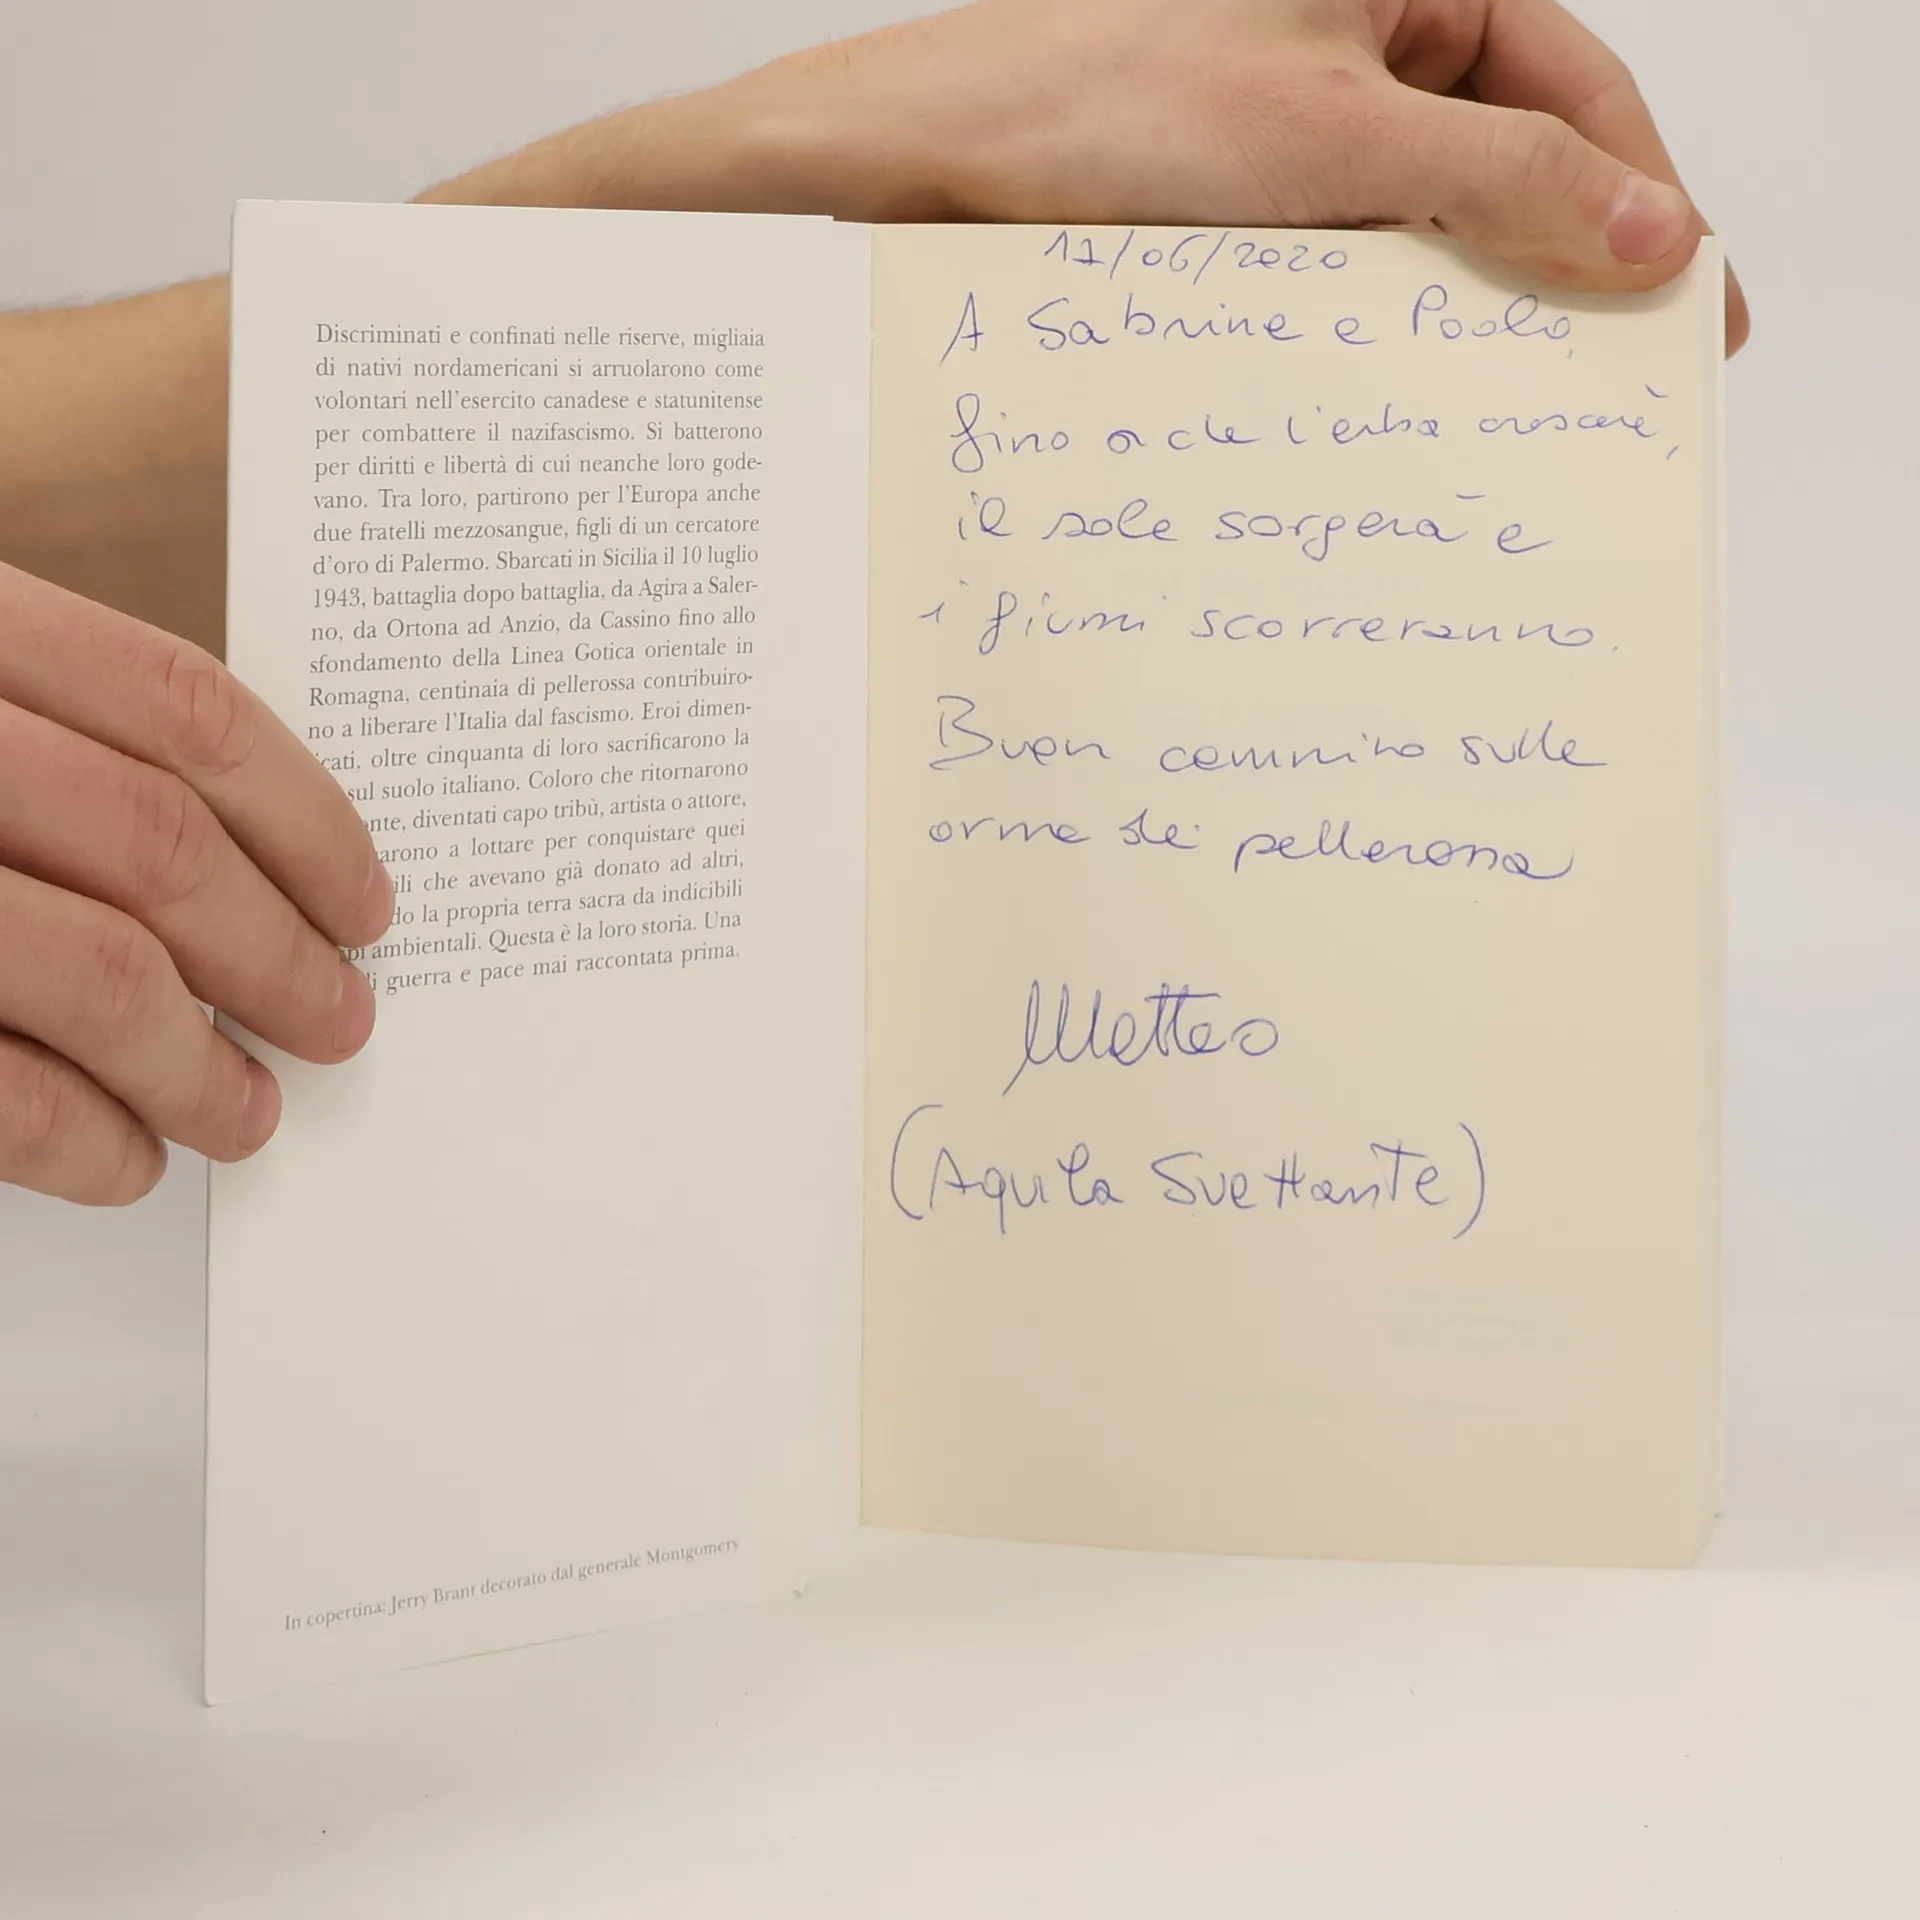 Discriminati e confinati nelle riserve, migliaia
di nativi nordamericani si arruolarono come
volontari nell'esercito canadese e statunitense
per combattere il nazifascismo. Si batterono
per diritti e libertà di cui neanche loro gode-
vano. Tra loro, partirono per l'Europa anche
due fratelli mezzosangue, figli di un cercatore
d'oro di Palermo. Sbarcati in Sicilia il 10 luglio
1943, battaglia dopo battaglia, da Agira a Saler-
no, da Ortona ad Anzio, da Cassino fino allo
sfondamento della Linea Gotica orientale in
Romagna, centinaia di pellerossa contribuiro-
no a liberare l'Italia dal fascismo. Eroi dimen-
icati, oltre cinquanta di loro sacrificarono la
sul suolo italiano. Coloro che ritornarono
nte, diventati capo tribù, artista o attore,
arono a lottare per conquistare quei
ili che avevano già donato ad altri,
do la propria terra sacra da indicibili
pi ambientali. Questa è la loro storia. Una
li guerra e pace mai raccontata prima.
In copertina: Jerry Brant decorato dal generale Montgomery
11/06/2020
A Sabrine e Paolo,
fino a che l'erba crescerà,
il sole sorgerà e
i fiumi scorreranno.
Buon cammino sulle
orme dei pellerossa
Matteo
(Aquila Svettante)